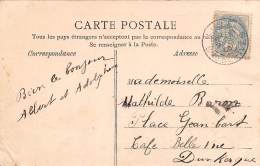 CARTE POSTALE
Tous les pays étrangers n'acceptent pas la correspondance au
Se renseigner à la Poste.
Correspondance
Adresse
Bien le bonjour
Albert et Adolphine
Mademoiselle
Mathilde Baron
Place Jean Bart
Café Belle Vue
Dunkerque